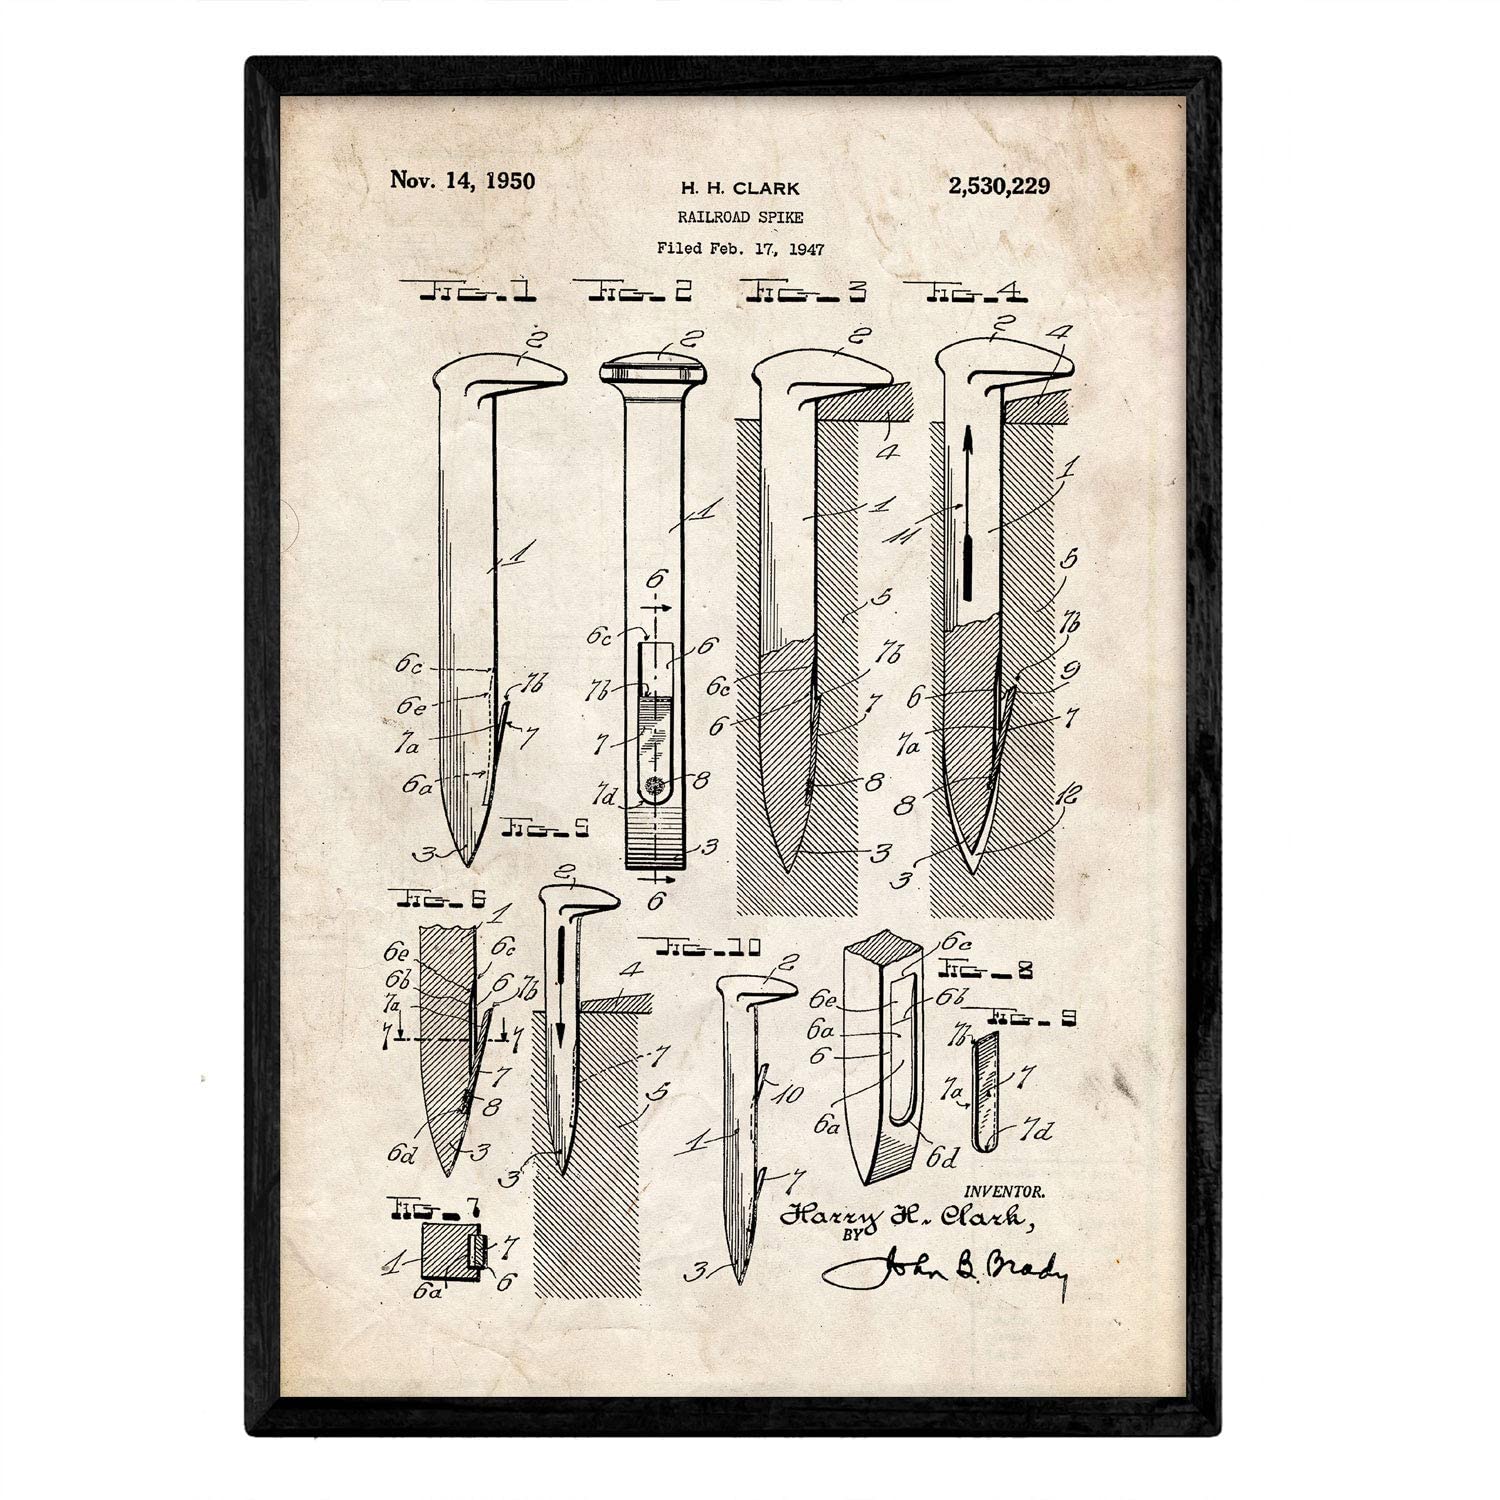 Nov. 14, 1950
H. H. CLARK
2,530,229
RAILROAD SPIKE
Filed Feb. 17, 1947
FIG. 1
FIG. 2
FIG. 3
FIG. 4
2
1
6c
6e
7a
6a
7b
7
3
2
1
6
6c
6
7b
7
8
7d
3
6
2
4
1
5
7b
6c
6
7
8
3
2
4
1
11
5
7b
9
6
7
7a
8
12
3
FIG. 5
2
4
7
5
3
FIG. 6
1
6e
6c
6b
6
7b
7a
7
7
7
8
6d
3
FIG. 10
2
10
1
7
3
6c
FIG. 8
6e
6b
6a
6
6a
6d
FIG. 9
7b
7
7a
7d
FIG. 7
1
7
6
6a
INVENTOR.
Harry H. Clark,
BY
John B. Brady